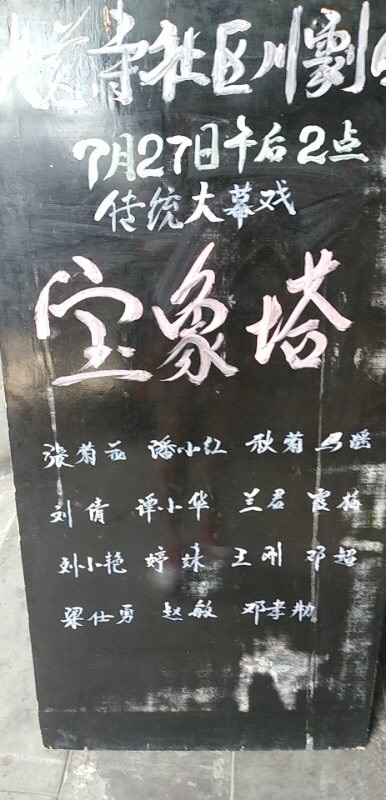 大慈寺社区川劇
7月27日午后2点
传统大幕戏
宝象塔
张菊 潘小红 秋菊 马瑶
刘倩 谭小华 兰君 霞梅
刘小艳 婷妹 王刚 邓超
梁仕勇 赵敏 邓孝勋